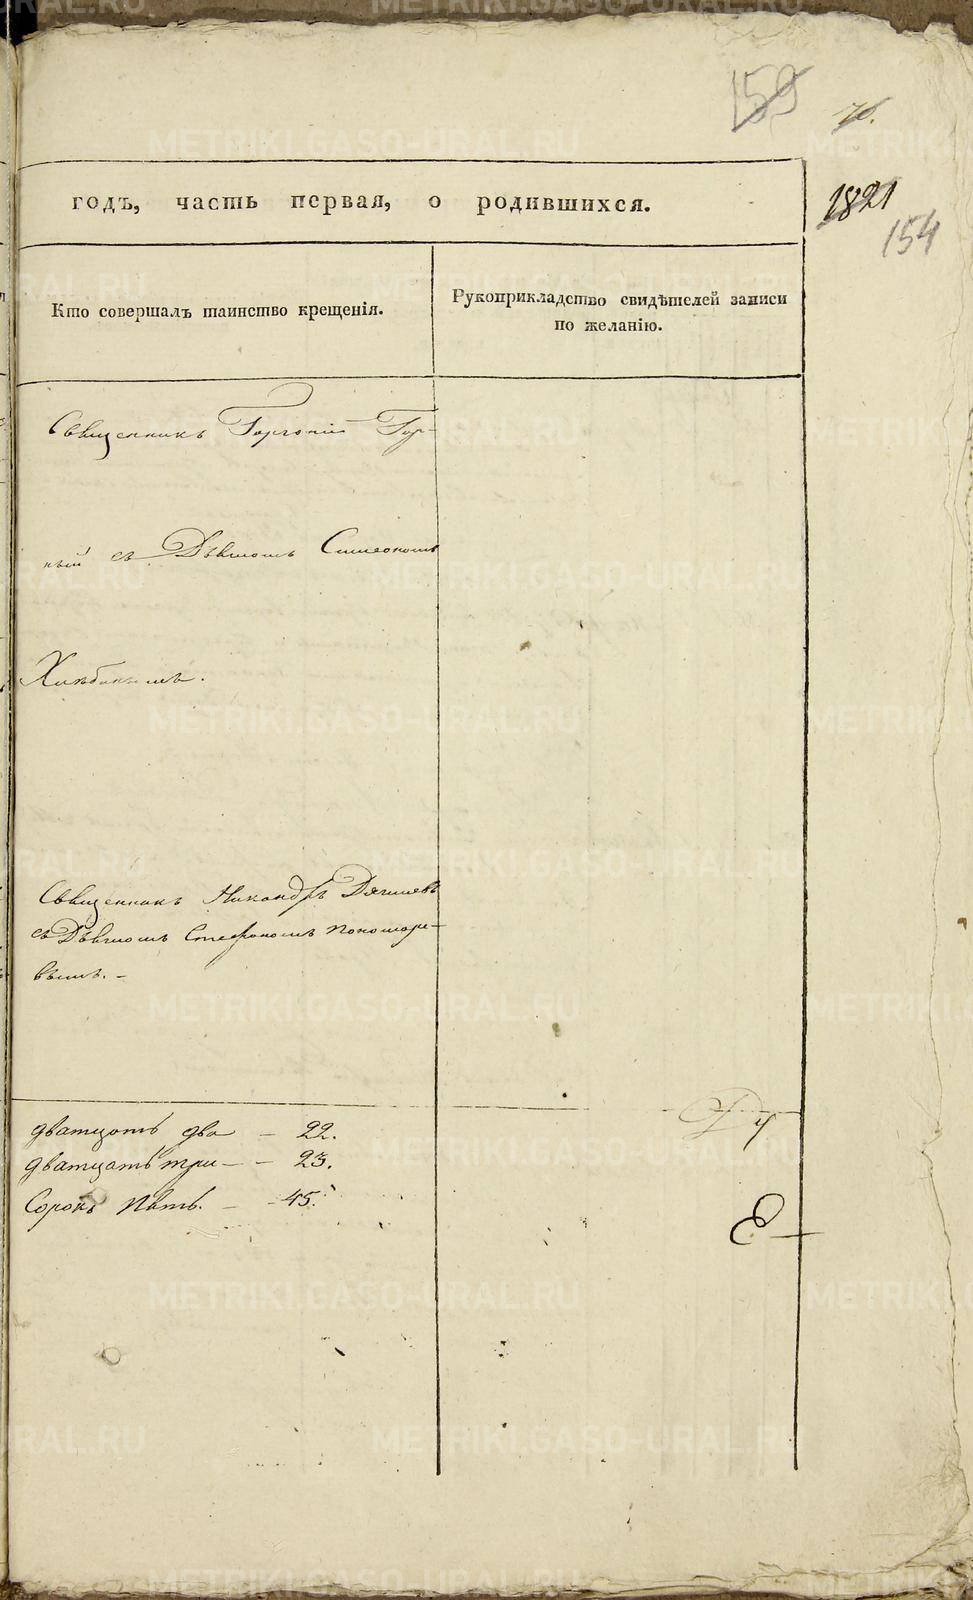 159
76.
годъ, часть первая, о родившихся.
1821
154
Кто совершалъ таинство крещенія.
Рукоприкладство свидѣтелей записи
по желанію.
Священникъ Горгоній Гор-
ный съ Дьячкомъ Симеономъ
Хлѣбинымъ.
Священникъ Никандръ Дягилевъ
съ Дьячкомъ Стефаномъ Пономаре-
вымъ. –
дватцать два – 22.
дватцать три – – 23.
Сорокъ пять. – – 45.
METRIKI.GASO-URAL.RU